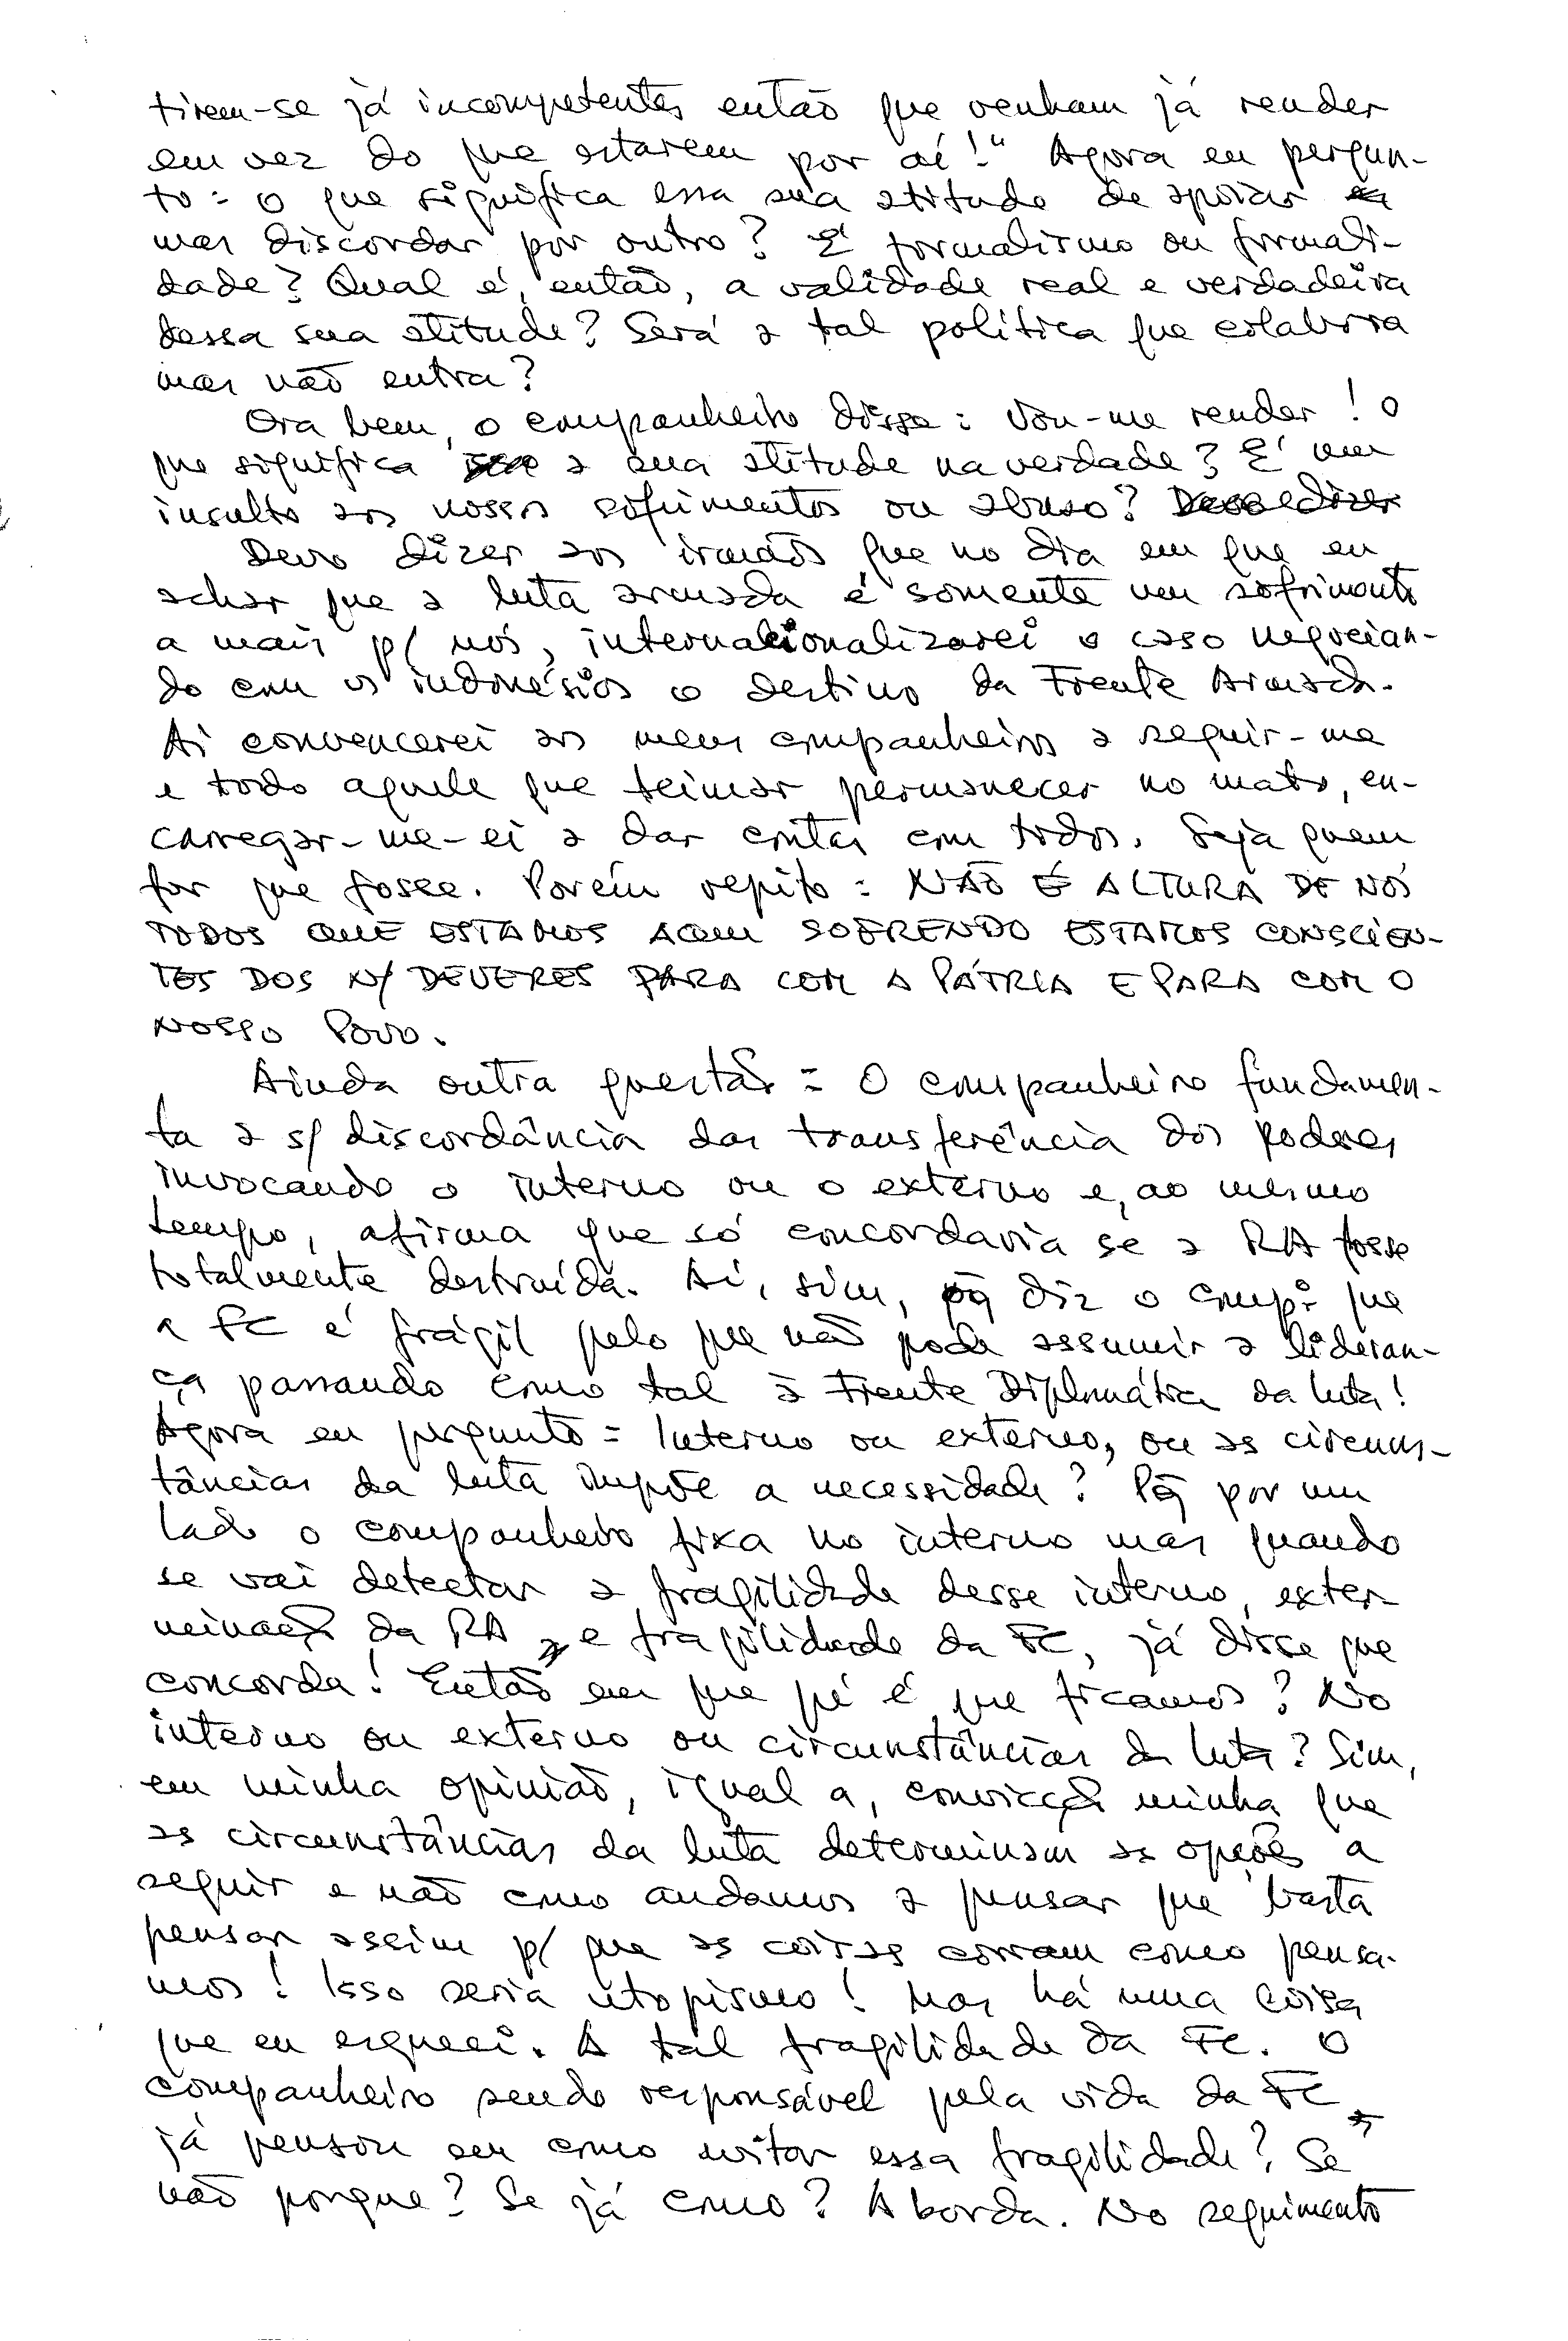 tirem-se já incompetentes então que venham já render
em vez do que estarem por aí!" Agora eu pergun-
to: o que significa essa sua atitude de apoiar
mas discordar por outro? É formalismo ou formali-
dade? Qual é, então, a validade real e verdadeira
dessa sua atitude? Será a tal política que colabora
mas não entra?
Ora bem, o companheiro disse: Vou-me render! O
que significa a sua atitude na verdade? É um
insulto aos nossos sofrimentos ou abuso?
Devo dizer aos irmãos que no dia em que eu
achar que a luta armada é somente um sofrimento
a mais p/ nós, internacionalizarei o caso negocian-
do com os indonésios o destino da Frente Armada.
Aí convencerei aos meus companheiros a seguir-me
e todo aquele que teimar permanecer no mato, en-
carregar-me-ei a dar contas com todos. Seja quem
for que fosse. Porém repito: NÃO É ALTURA DE NÓS
TODOS QUE ESTAMOS AQUI SOFRENDO ESTARMOS CONSCIEN-
TES DOS N/ DEVERES PARA COM A PÁTRIA E PARA COM O
NOSSO POVO.
Ainda outra questão: O companheiro fundamen-
ta a s/ discordância das transferência dos poderes
invocando o interno ou o externo e, ao mesmo
tempo, afirma que só concordaria se a RA fosse
totalmente destruída. Aí, sim, pq diz o comp.º que
a FC é frágil pelo que não pode assumir a lideran-
ça passando como tal à Frente Diplomática da luta!
Agora eu pergunto: Interno ou externo, ou as circuns-
tâncias da luta impõe a necessidade? Pq por um
lado o companheiro fixa no interno mas quando
se vai detectar a fragilidade desse interno, exter-
minação da RA e fragilidade da FC, já disse que
concorda! Então em que pé é que ficamos? No
interno ou externo ou circunstâncias da luta? Sim,
em minha opinião, igual a, convicção minha que
as circunstâncias da luta determinam as opções a
seguir e não como andamos a pensar que basta
pensar assim p/ que as coisas corram como pensa-
mos! Isso seria utopismo! Mas há uma coisa
que eu esqueci. A tal fragilidade da FC. O
companheiro sendo responsável pela vida da FC,
já pensou em como evitar essa fragilidade? Se
não porque? Se já como? Aborda. No seguimento